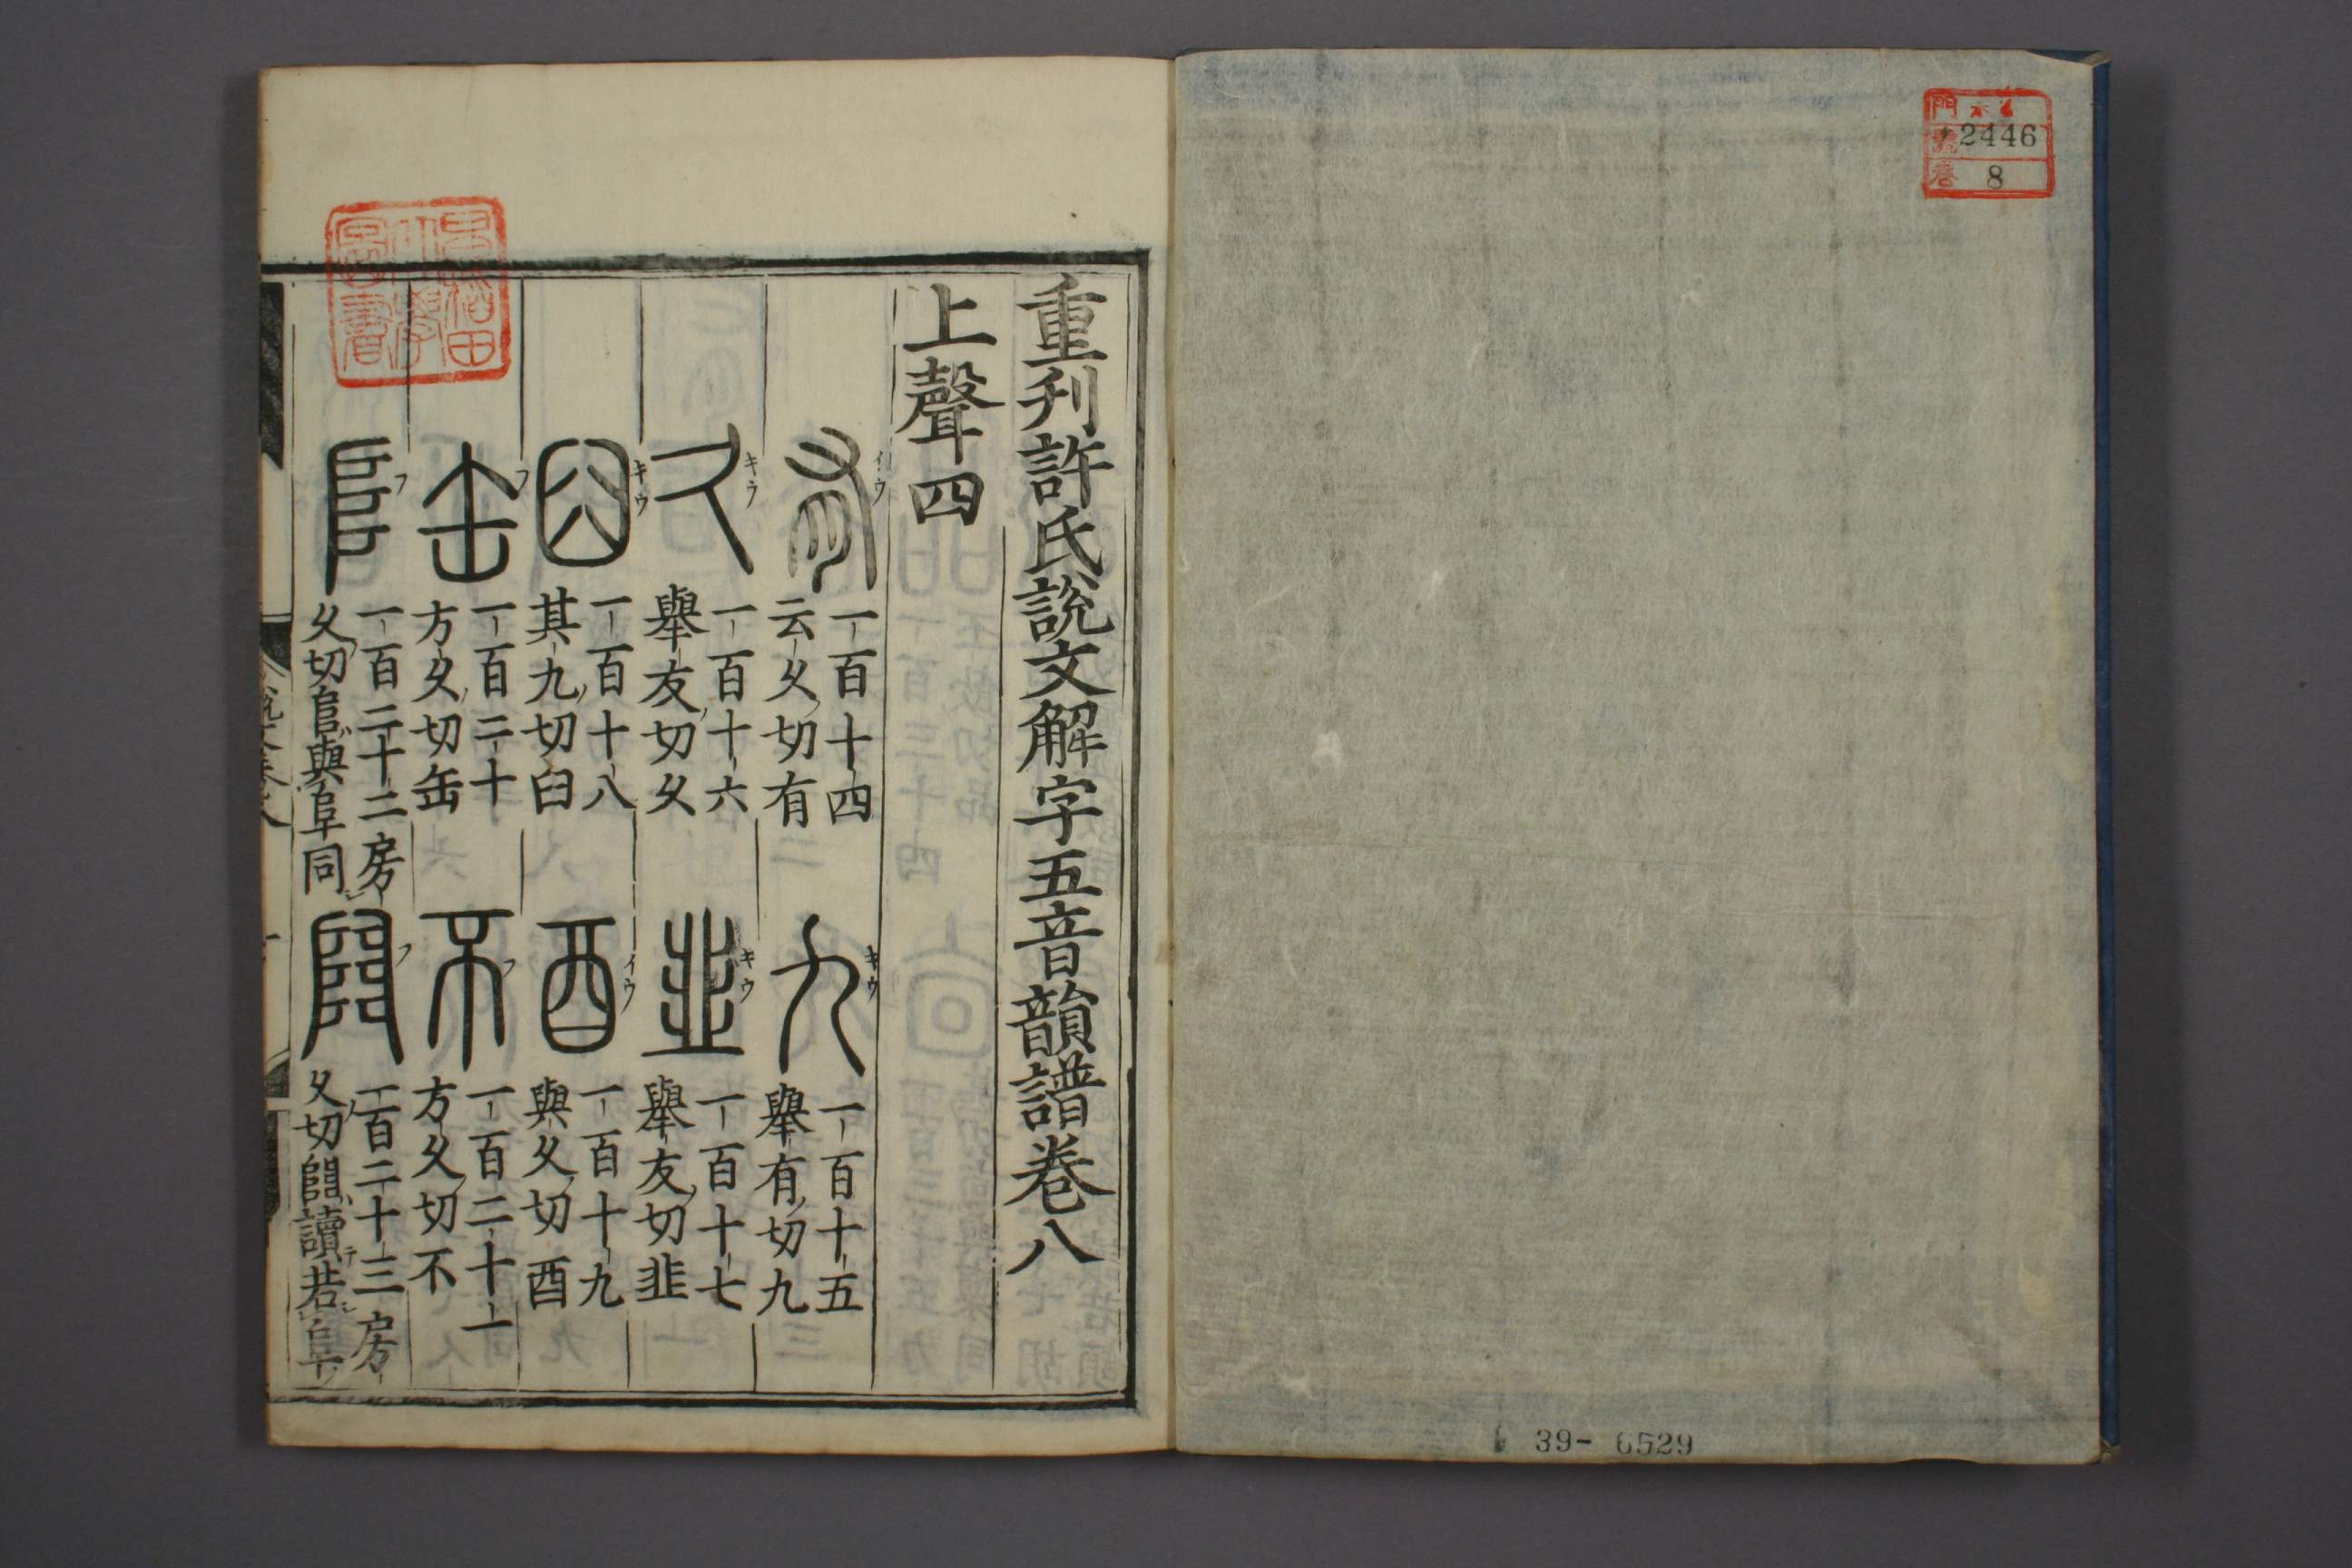 2446
8
39-6529
重刋許氏說文解字五音韻譜卷八
上聲四
有 イウ 一百十四云久切有
九 キウ 一百十五舉有切九
久 キウ 一百十六舉友切久
韭 キウ 一百十七舉友切韭
臼 キウ 一百十八其九切臼
酉 イウ 一百十九與久切酉
缶 フ 一百二十方久切缶
不 フ 一百二十一方久切不
𨸏 フ 一百二十二房久切𨸏與阜同
𨺅 フ 一百二十三房久切𨺅讀若阜
早稻田大學圖書